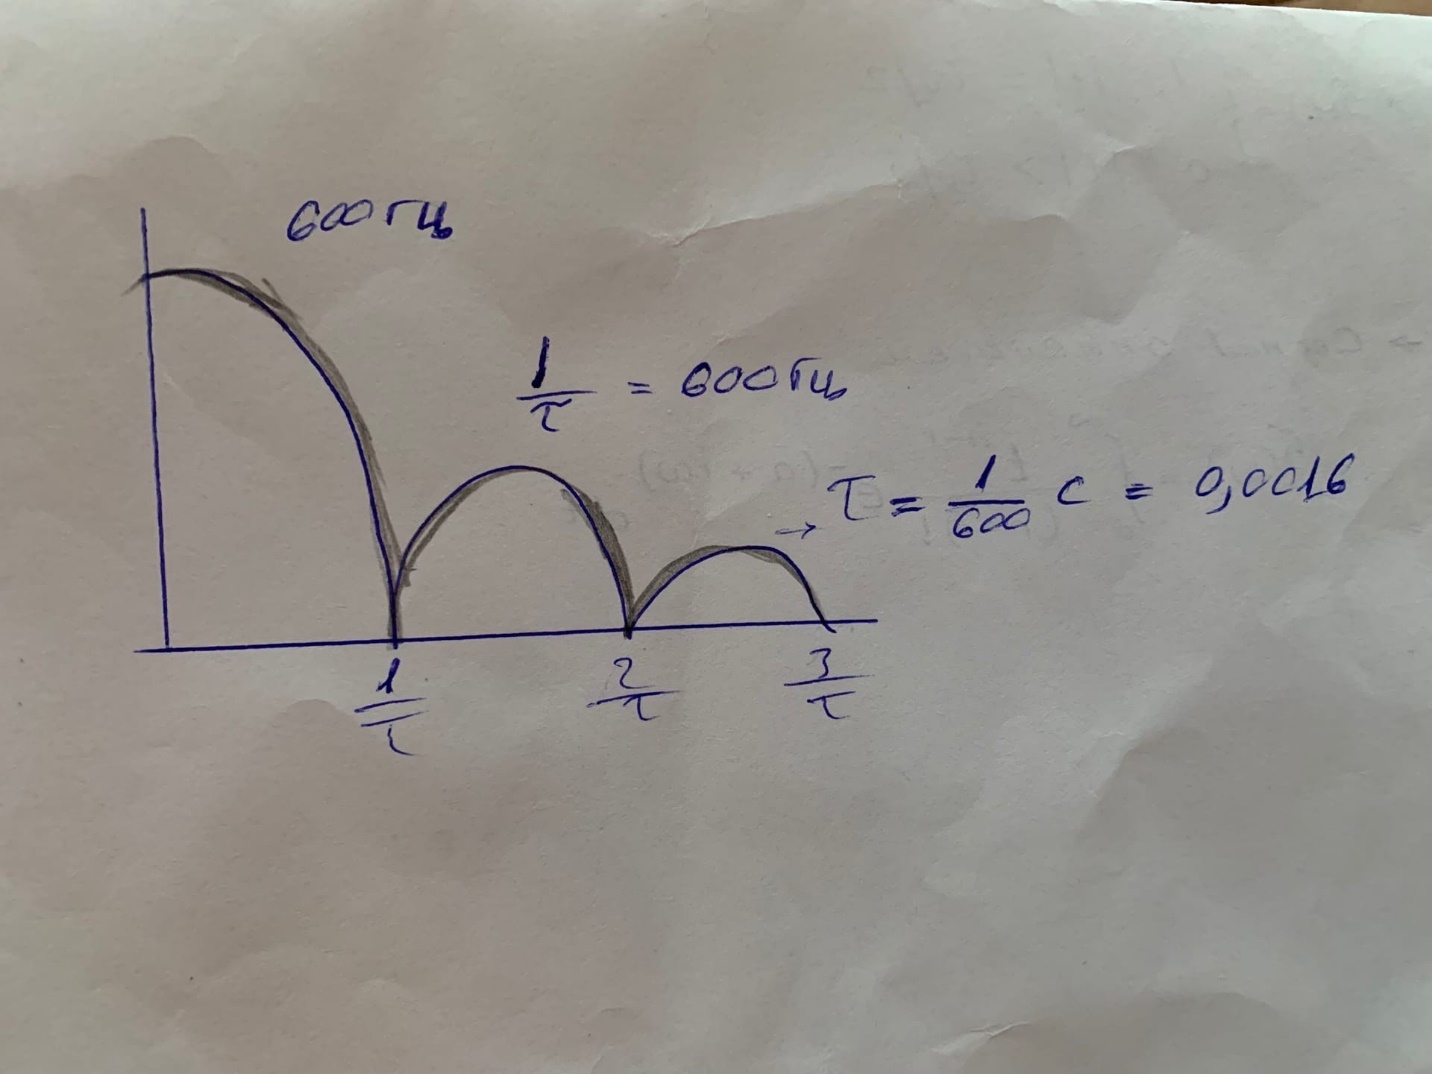 600 Гц
1/τ = 600 Гц
→ τ = 1/600 с = 0,0016
1/τ 2/τ 3/τ